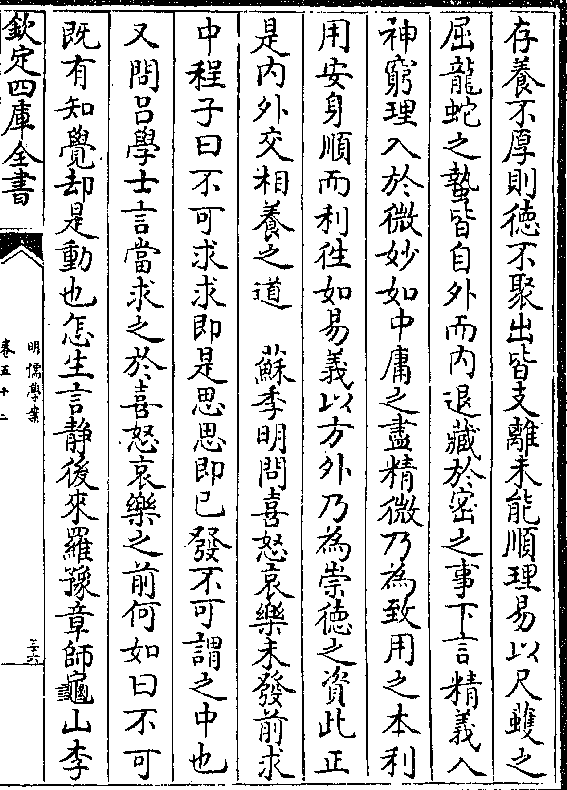 存養不厚則徳不聚出皆支離未能順理易以尺蠖之
屈龍蛇之蟄皆自外而内退藏於密之事下言精義入
神窮理入於微妙如中庸之盡精微乃為致用之本利
用安身順而利徃如易義以方外乃為崇徳之資此正
是内外交相養之道　蘇季明問喜怒哀樂未發前求
中程子曰不可求求即是思思即已發不可謂之中也
又問吕學士言當求之於喜怒哀樂之前何如曰不可
既有知覺却是動也怎生言静後來羅豫章師龜山李
欽定四庫全書
明儒學案
卷五十二
三六